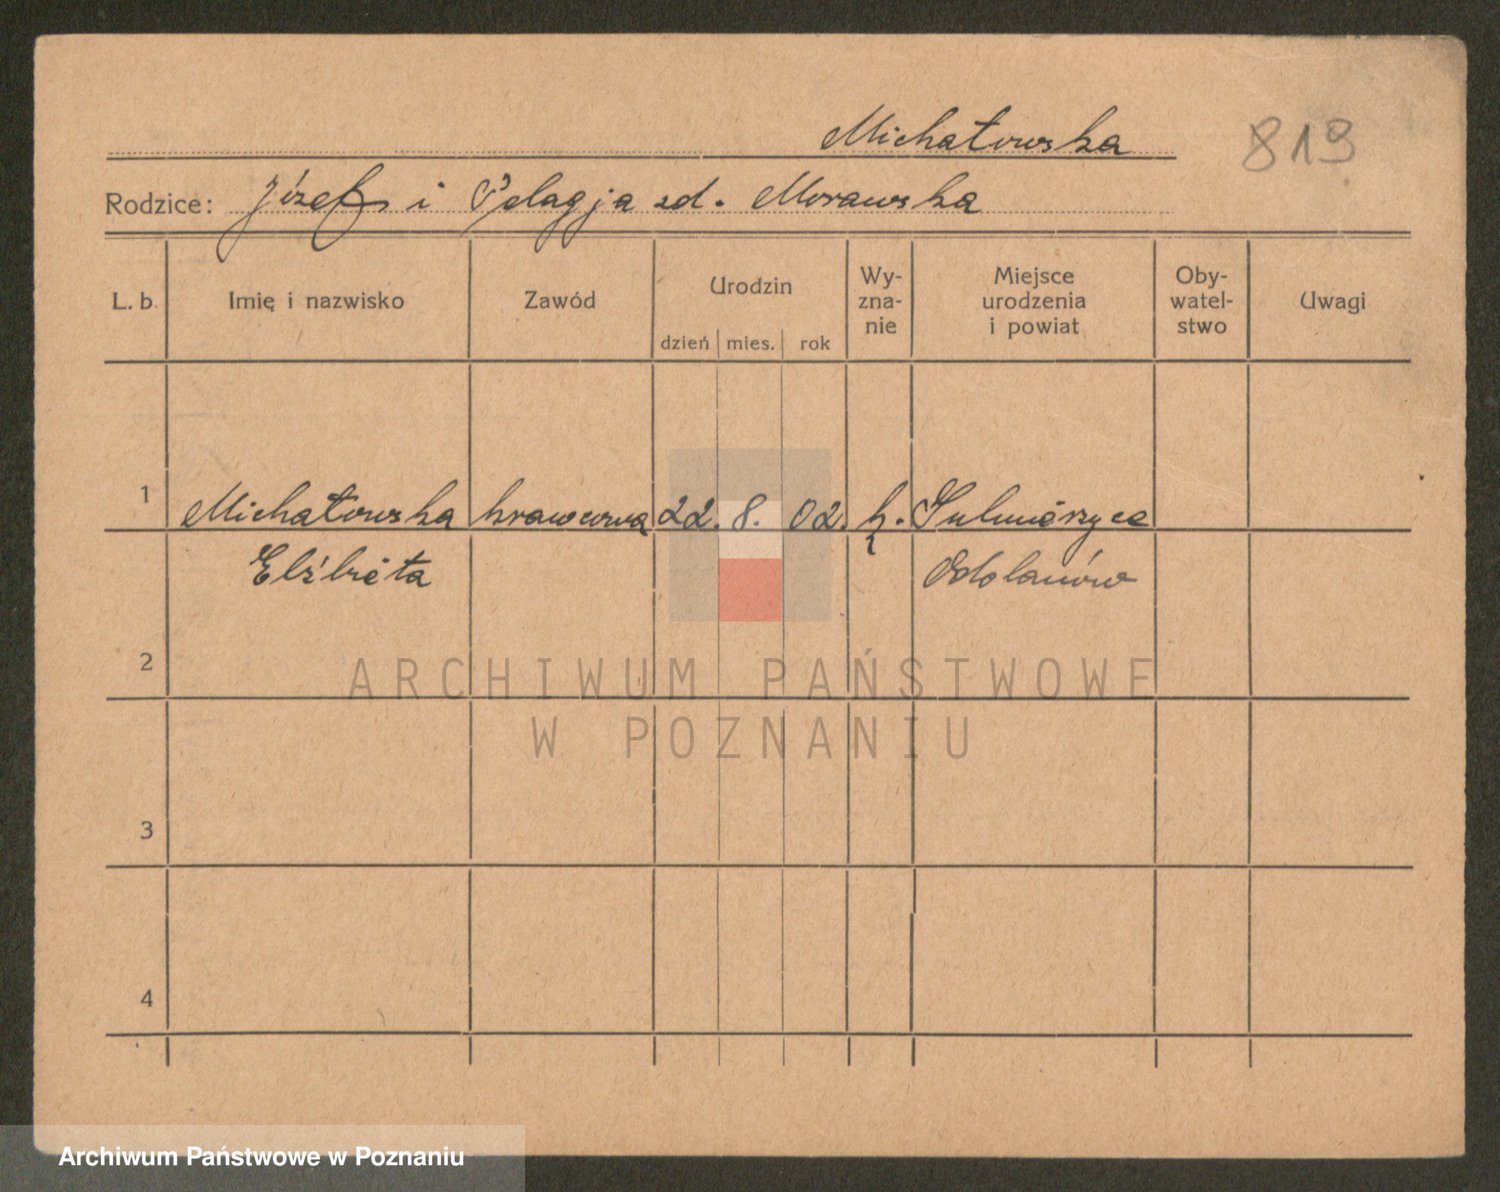 Michałowska 819
Rodzice: Józef i Pelagja zd. Morawska
L. b. Imię i nazwisko Zawód Urodzin dzień mies. rok Wy-zna-nie Miejsce urodzenia i powiat Oby-watel-stwo Uwagi
1 Michałowska krawcowa 22. 8. 02. k. Sulmierzyce
Elżbieta Odolanów
2
ARCHIWUM PAŃSTWOWE
W POZNANIU
3
4
Archiwum Państwowe w Poznaniu